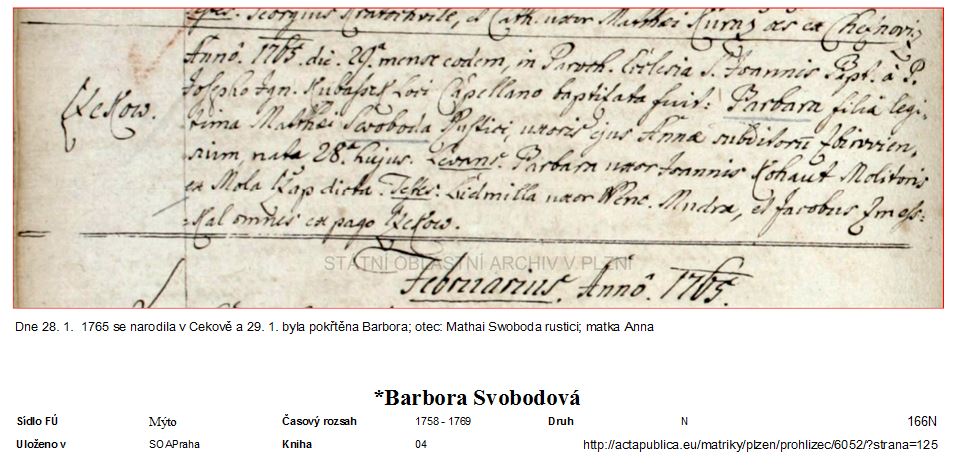 Testes. Georgius Kratochvile, et Cath. uxor Matthæi Kůrný ex Chejnovi
Annô. 1765. die. 29ª mense eodem, in Paroch. Ecclesia S. Joannis Bapt. â P.
Josepho Ign. Kubassek Loci Capellano baptisata fuit: Barbara filia legi-
Czekow. tima Matthæi Swoboda Rustici, uxoris ejus Annæ subditorū Zbirovien,
sium, nata 28ª hujus. Levans. Barbara uxor Joannis Kohaut Molitoris
ex Mola dicta. Testes. Ludmilla uxor Wenc. Mudra, et Jacobus
omnes ex pago Czekow.
STÁTNÍ OBLASTNÍ ARCHIV V PLZNI
Februarius. Annô. 1765.
Dne 28. 1. 1765 se narodila v Cekově a 29. 1. byla pokřtěna Barbora; otec: Mathai Swoboda rustici; matka Anna
*Barbora Svobodová
Sídlo FÚ Mýto Časový rozsah 1758 - 1769 Druh N 166N
Uloženo v SOAPraha Kniha 04 http://actapublica.eu/matriky/plzen/prohlizec/6052/?strana=125